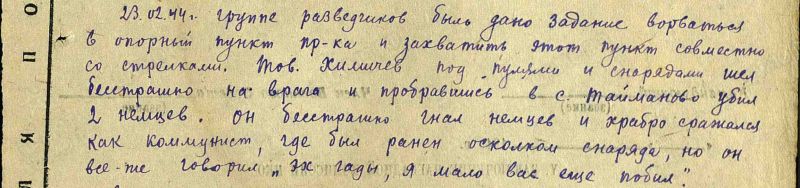 23.02.44г. группе разведчиков был дано задание ворваться
в опорный пункт пр-ка и захватить этот пункт совместно
со стрелками. Тов. Химичев под пулями и снарядами шел
бесстрашно на врага и пробравшись в с. Тайманово убил
2 немцев. он бесстрашно гнал немцев и храбро сражался
как коммунист, где был ранен осколком снаряда, но он
все-же говорил „эх гады я мало вас еще побил"